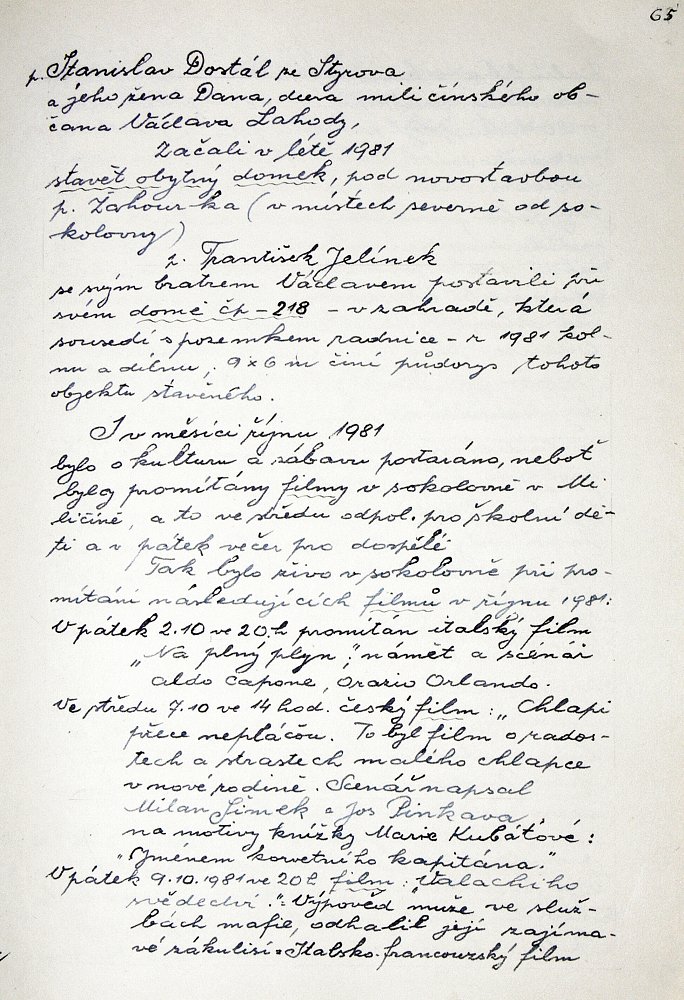 65
p. Stanislav Dostál ze Styrova
a jeho žena Dana, dcera miličínského ob-
čana Václava Lahody,
Začali v létě 1981
stavět obytný domek, pod novostavbou
p. Záhourka (v místech severně od so-
kolovny)
p. František Jelínek
se svým bratrem Václavem postavili při
svém domě čp – 218 – v zahradě, která
sousedí s pozemkem radnice – r 1981 kol-
nu a dílnu, 9 x 6 m činí půdorys tohoto
objektu stavěného.
I v měsíci říjnu 1981
bylo o kulturu a zábavu postaráno, neboť
byly promítány filmy v sokolovně v Mi-
ličíně, a to ve středu odpol. pro školní dě-
ti a v pátek večer pro dospělé
Tak bylo živo v sokolovně při pro-
mítání následujících filmů v říjnu 1981:
V pátek 2.10 ve 20.h promítán italský film
„Na plný plyn", námět a scénář
aldo capone, Orazio Orlando.
Ve středu 7.10 ve 14 hod. český film: „Chlapi
přece nepláčou. To byl film o rados-
tech a strastech malého chlapce
v nové rodině. Scenář napsal
Milan Šimek a Jos Pinkava,
na motivy knížky Marie Kubátové:
„Jménem korvetního kapitána."
V pátek 9.10.1981 ve 20 h film: Valachiho
svědectví." Výpověď muže ve služ-
bách mafie, odhalil její zajíma-
vé zákulisí. Italsko-francouzský film